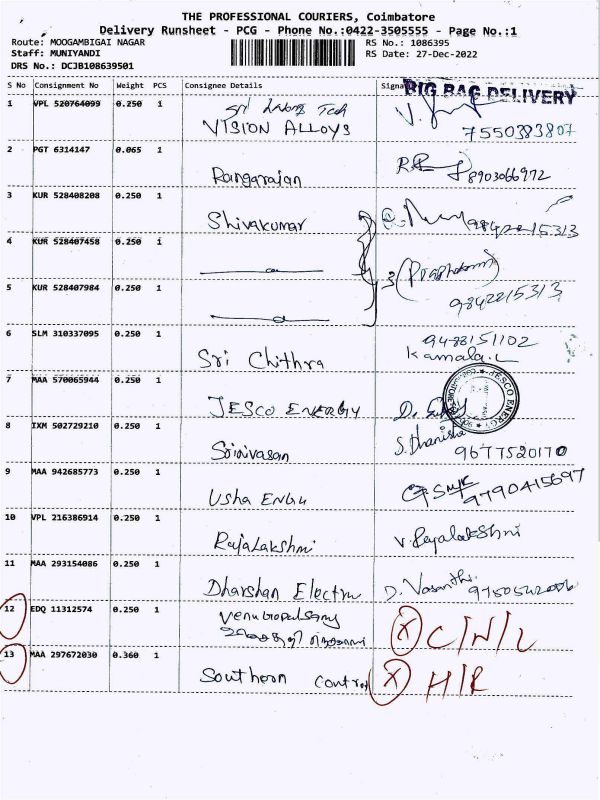 THE PROFESSIONAL COURIERS, Coimbatore
Delivery Runsheet - PCG - Phone No.:0422-3505555 - Page No.:1
Route: MOOGAMBIGAI NAGAR RS No.: 1086395
Staff: MUNIYANDI RS Date: 27-Dec-2022
DRS No.: DCJB108639501
S No Consignment No Weight PCS Consignee Details Signa
BIG BAG DELIVERY
1 VPL 520764099 0.250 1 Sri
VISION ALLOYS 7550383807
2 PGT 6314147 0.065 1 Rangarajan 8903066972
3 KUR 528408208 0.250 1 Shivakumar
4 KUR 528407458 0.250 1
5 KUR 528407984 0.250 1 3 9842215313
6 SLM 310337095 0.250 1 Sri Chithra 9488151102
Kamala.L
7 MAA 570065944 0.250 1 JESCO ENERGY
JESCO ENERGY
8 IXM 502729210 0.250 1 Srinivasan S. Dhanisha
9677520170
9 MAA 942685773 0.250 1 Usha ENGG 9790415697
10 VPL 216386914 0.250 1 Rajalakshmi V. Rajalakshmi
11 MAA 293154086 0.250 1 Dharshan Electri D. Vasanthi
12 EDQ 11312574 0.250 1 Venugopalsamy X C/N/L
13 MAA 297672030 0.360 1 Southern Control X H/R